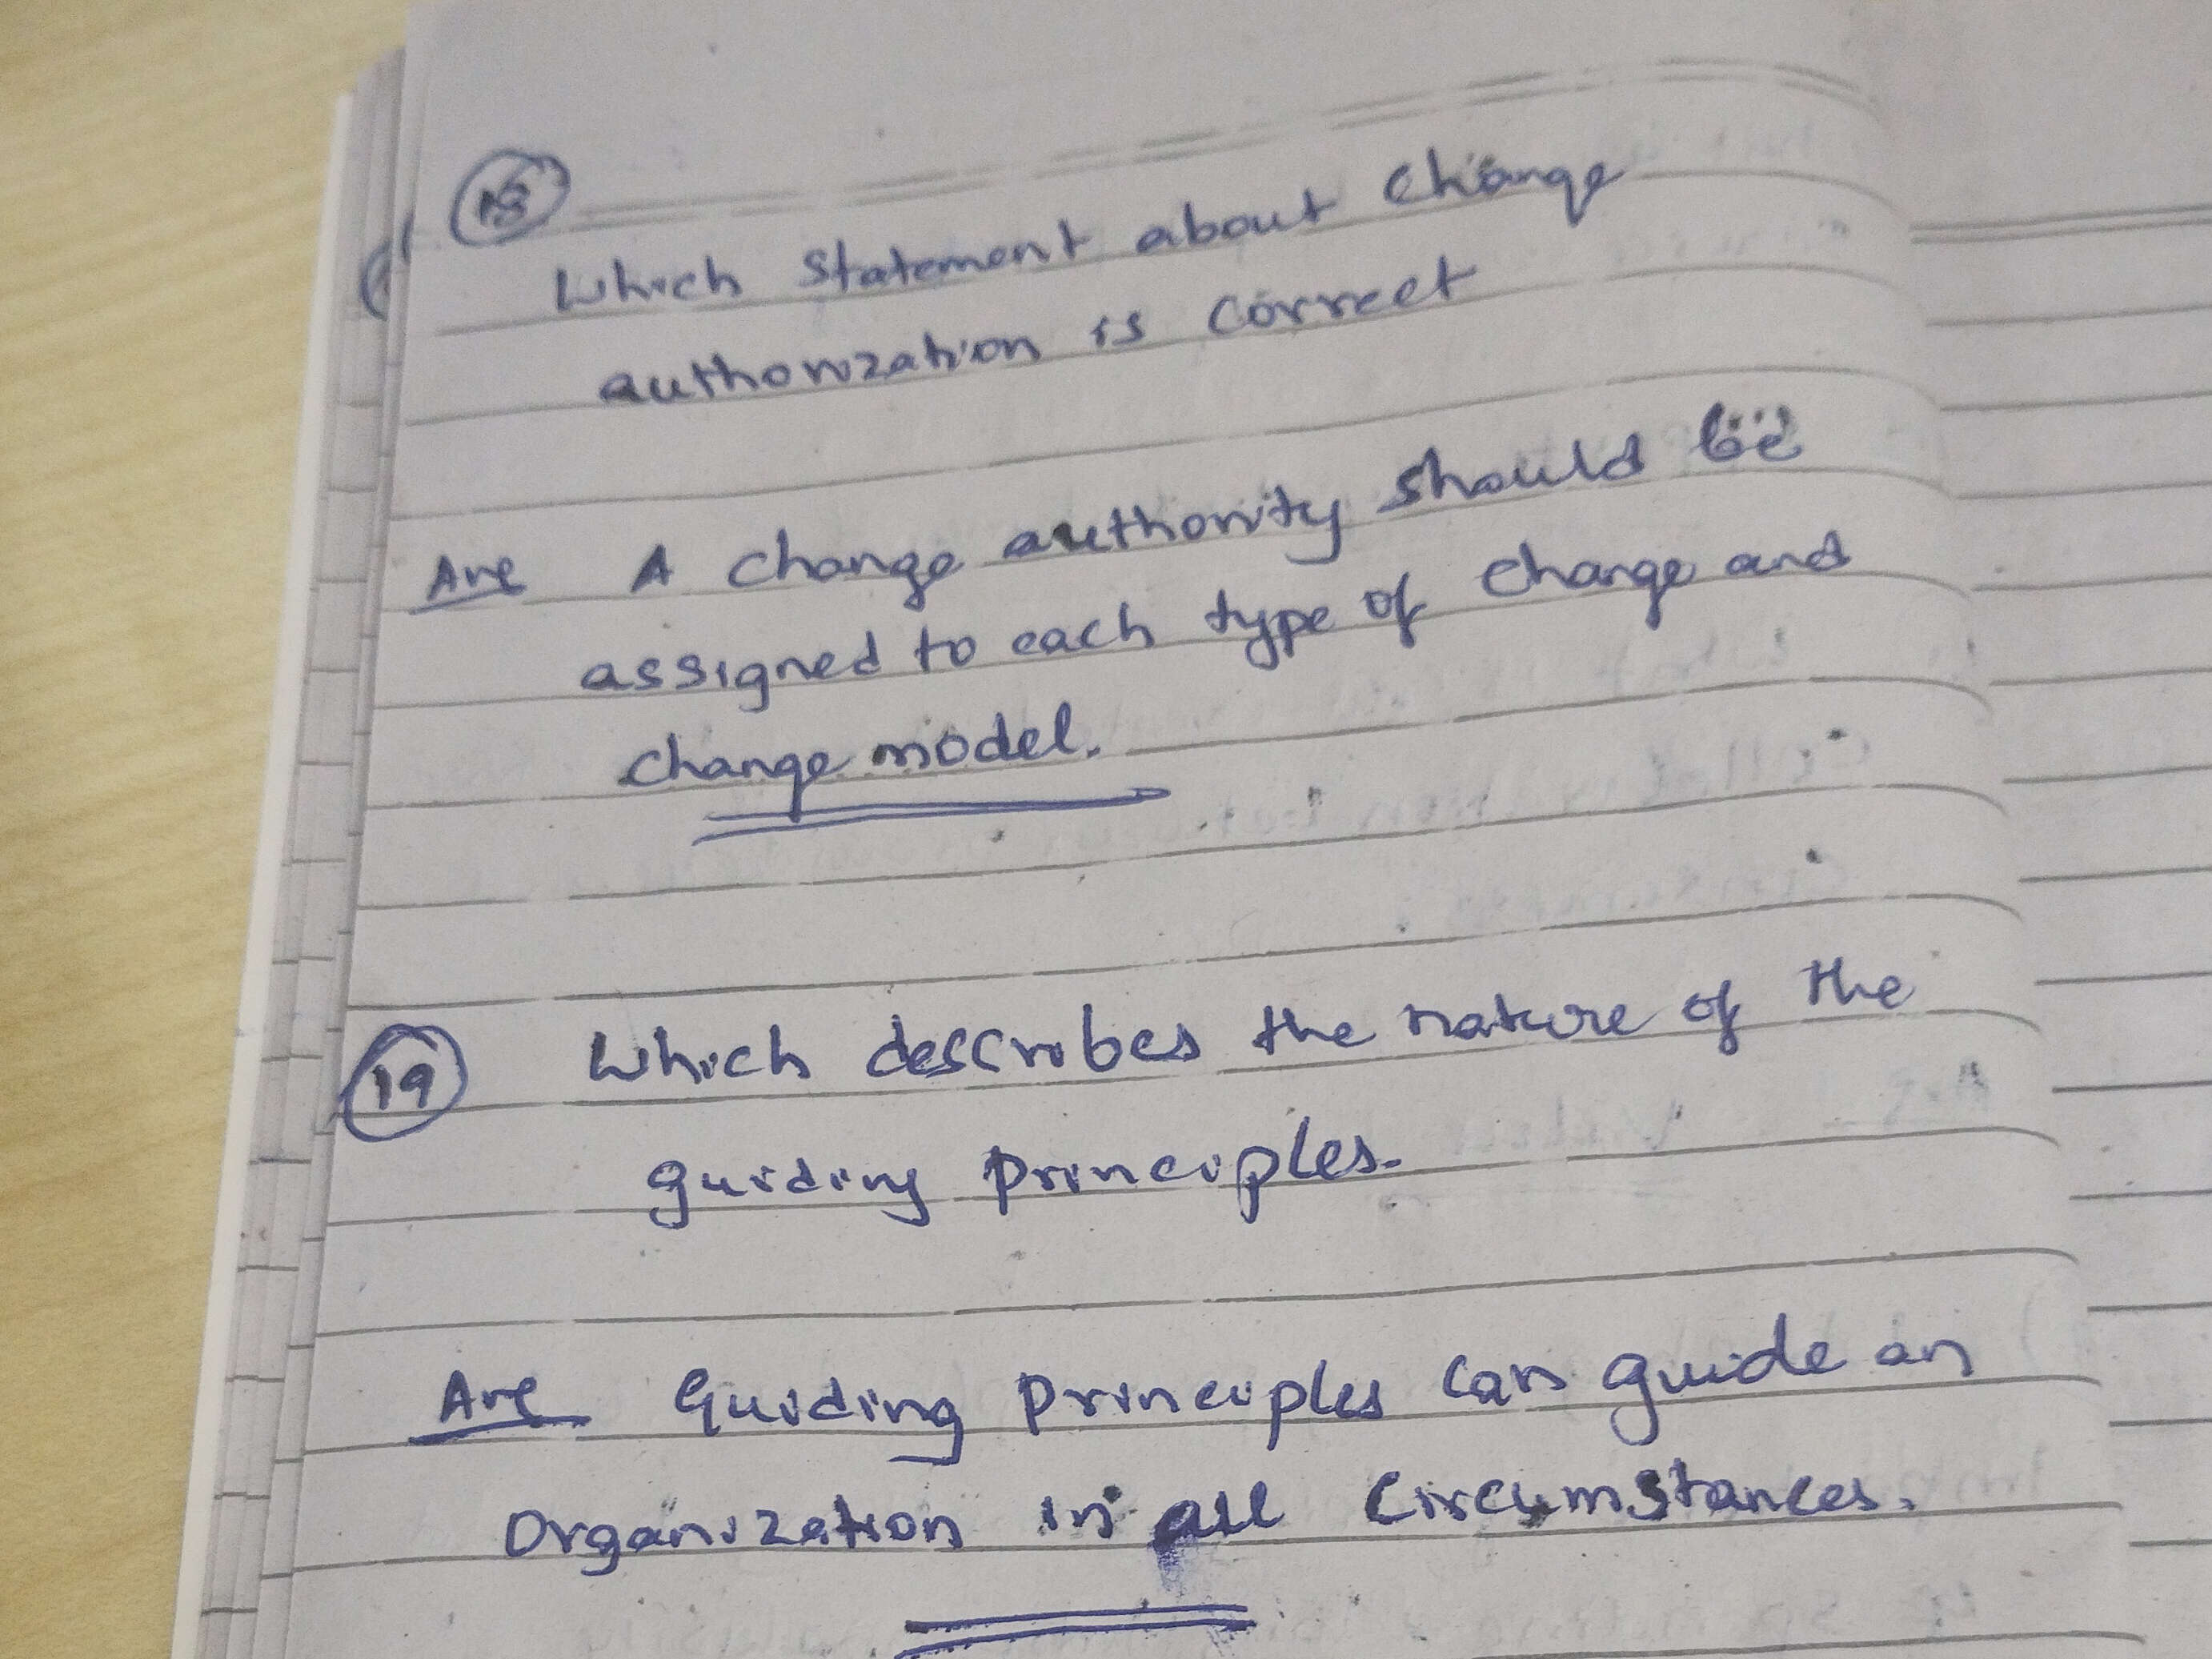 18
Which Statement about change
authorization is correct
Ans A change authority should be
assigned to each type of change and
change model.
19 Which describes the nature of the
guiding principles.
Ans Guiding principles can guide an
Organization in all Circumstances.